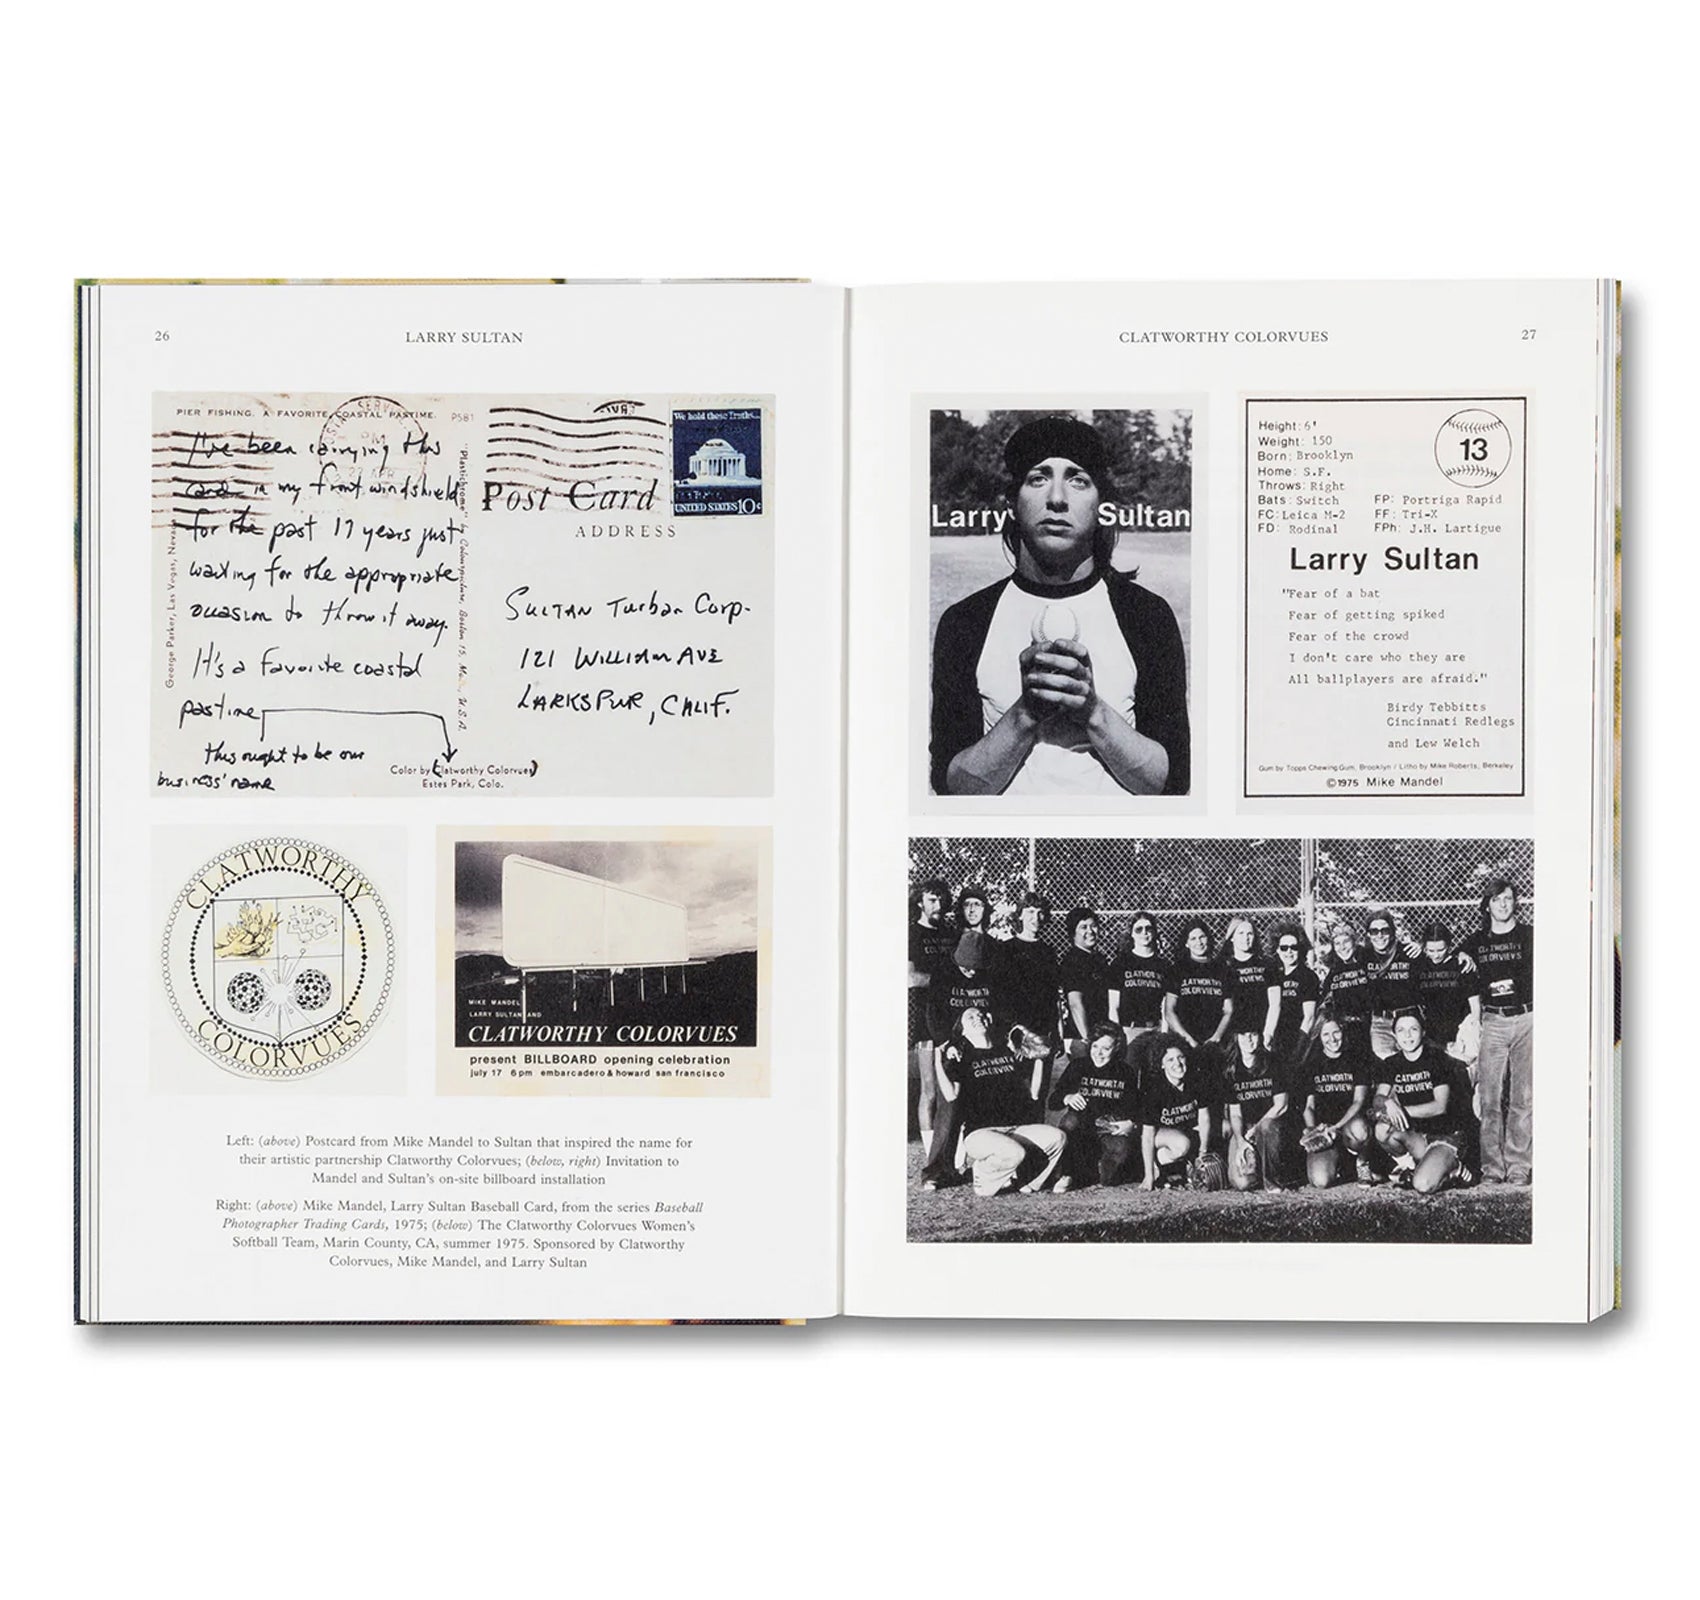 26
LARRY SULTAN
PIER FISHING. A FAVORITE COASTAL PASTIME.
P581
I've been carrying this
card in my front windshield
for the past 17 years just
waiting for the appropriate
occasion to throw it away.
It's a favorite coastal
pastime
this ought to be our
business' name
George Parker, Las Vegas, Nevada
"Plastichrome" by Colourpicture, Boston 15, Mass., U.S.A.
Color by (Clatworthy Colorvues)
Estes Park, Colo.
We hold these Truths...
UNITED STATES 10c
Post Card
ADDRESS
SULTAN Turban Corp.
121 WILLIAM AVE
LARKSPUR, CALIF.
CLATWORTHY
COLORVUES
MIKE MANDEL
LARRY SULTAN AND
CLATWORTHY COLORVUES
present BILLBOARD opening celebration
july 17 6pm embarcadero & howard san francisco
Left: (above) Postcard from Mike Mandel to Sultan that inspired the name for
their artistic partnership Clatworthy Colorvues; (below, right) Invitation to
Mandel and Sultan's on-site billboard installation
Right: (above) Mike Mandel, Larry Sultan Baseball Card, from the series Baseball
Photographer Trading Cards, 1975; (below) The Clatworthy Colorvues Women's
Softball Team, Marin County, CA, summer 1975. Sponsored by Clatworthy
Colorvues, Mike Mandel, and Larry Sultan
CLATWORTHY COLORVUES
27
Larry Sultan
Height: 6'
Weight: 150
Born: Brooklyn
Home: S.F.
Throws: Right
Bats: Switch
FC: Leica M-2
FD: Rodinal
13
FP: Portriga Rapid
FF: Tri-X
FPh: J.H. Lartigue
Larry Sultan
"Fear of a bat
Fear of getting spiked
Fear of the crowd
I don't care who they are
All ballplayers are afraid."
Birdy Tebbitts
Cincinnati Redlegs
and Lew Welch
Gum by Topps Chewing Gum, Brooklyn / Litho by Mike Roberts, Berkeley
©1975 Mike Mandel